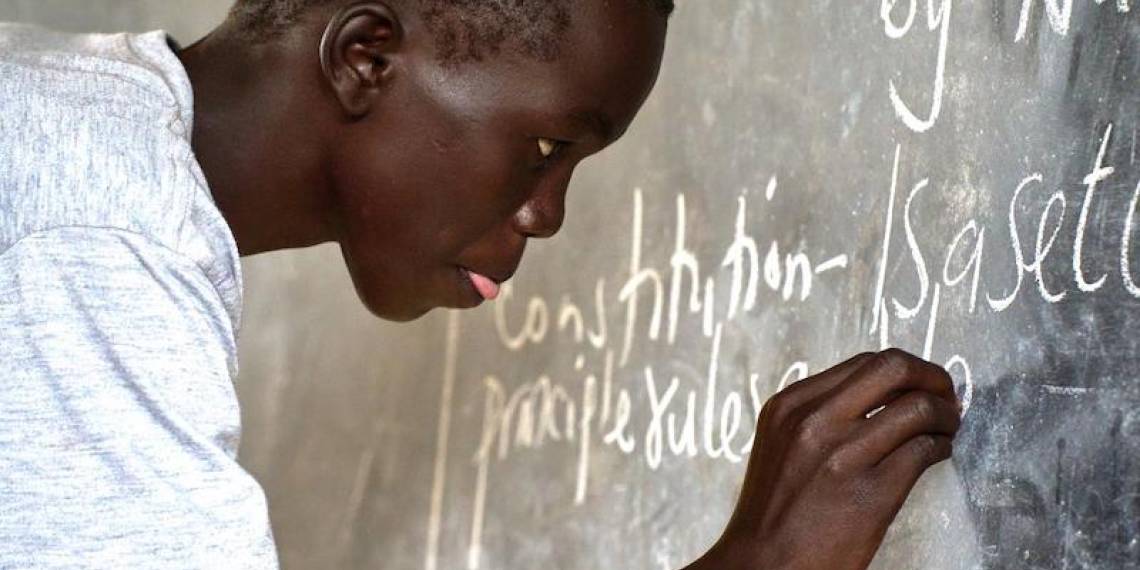 by
Constitution- Is a set
principle rules